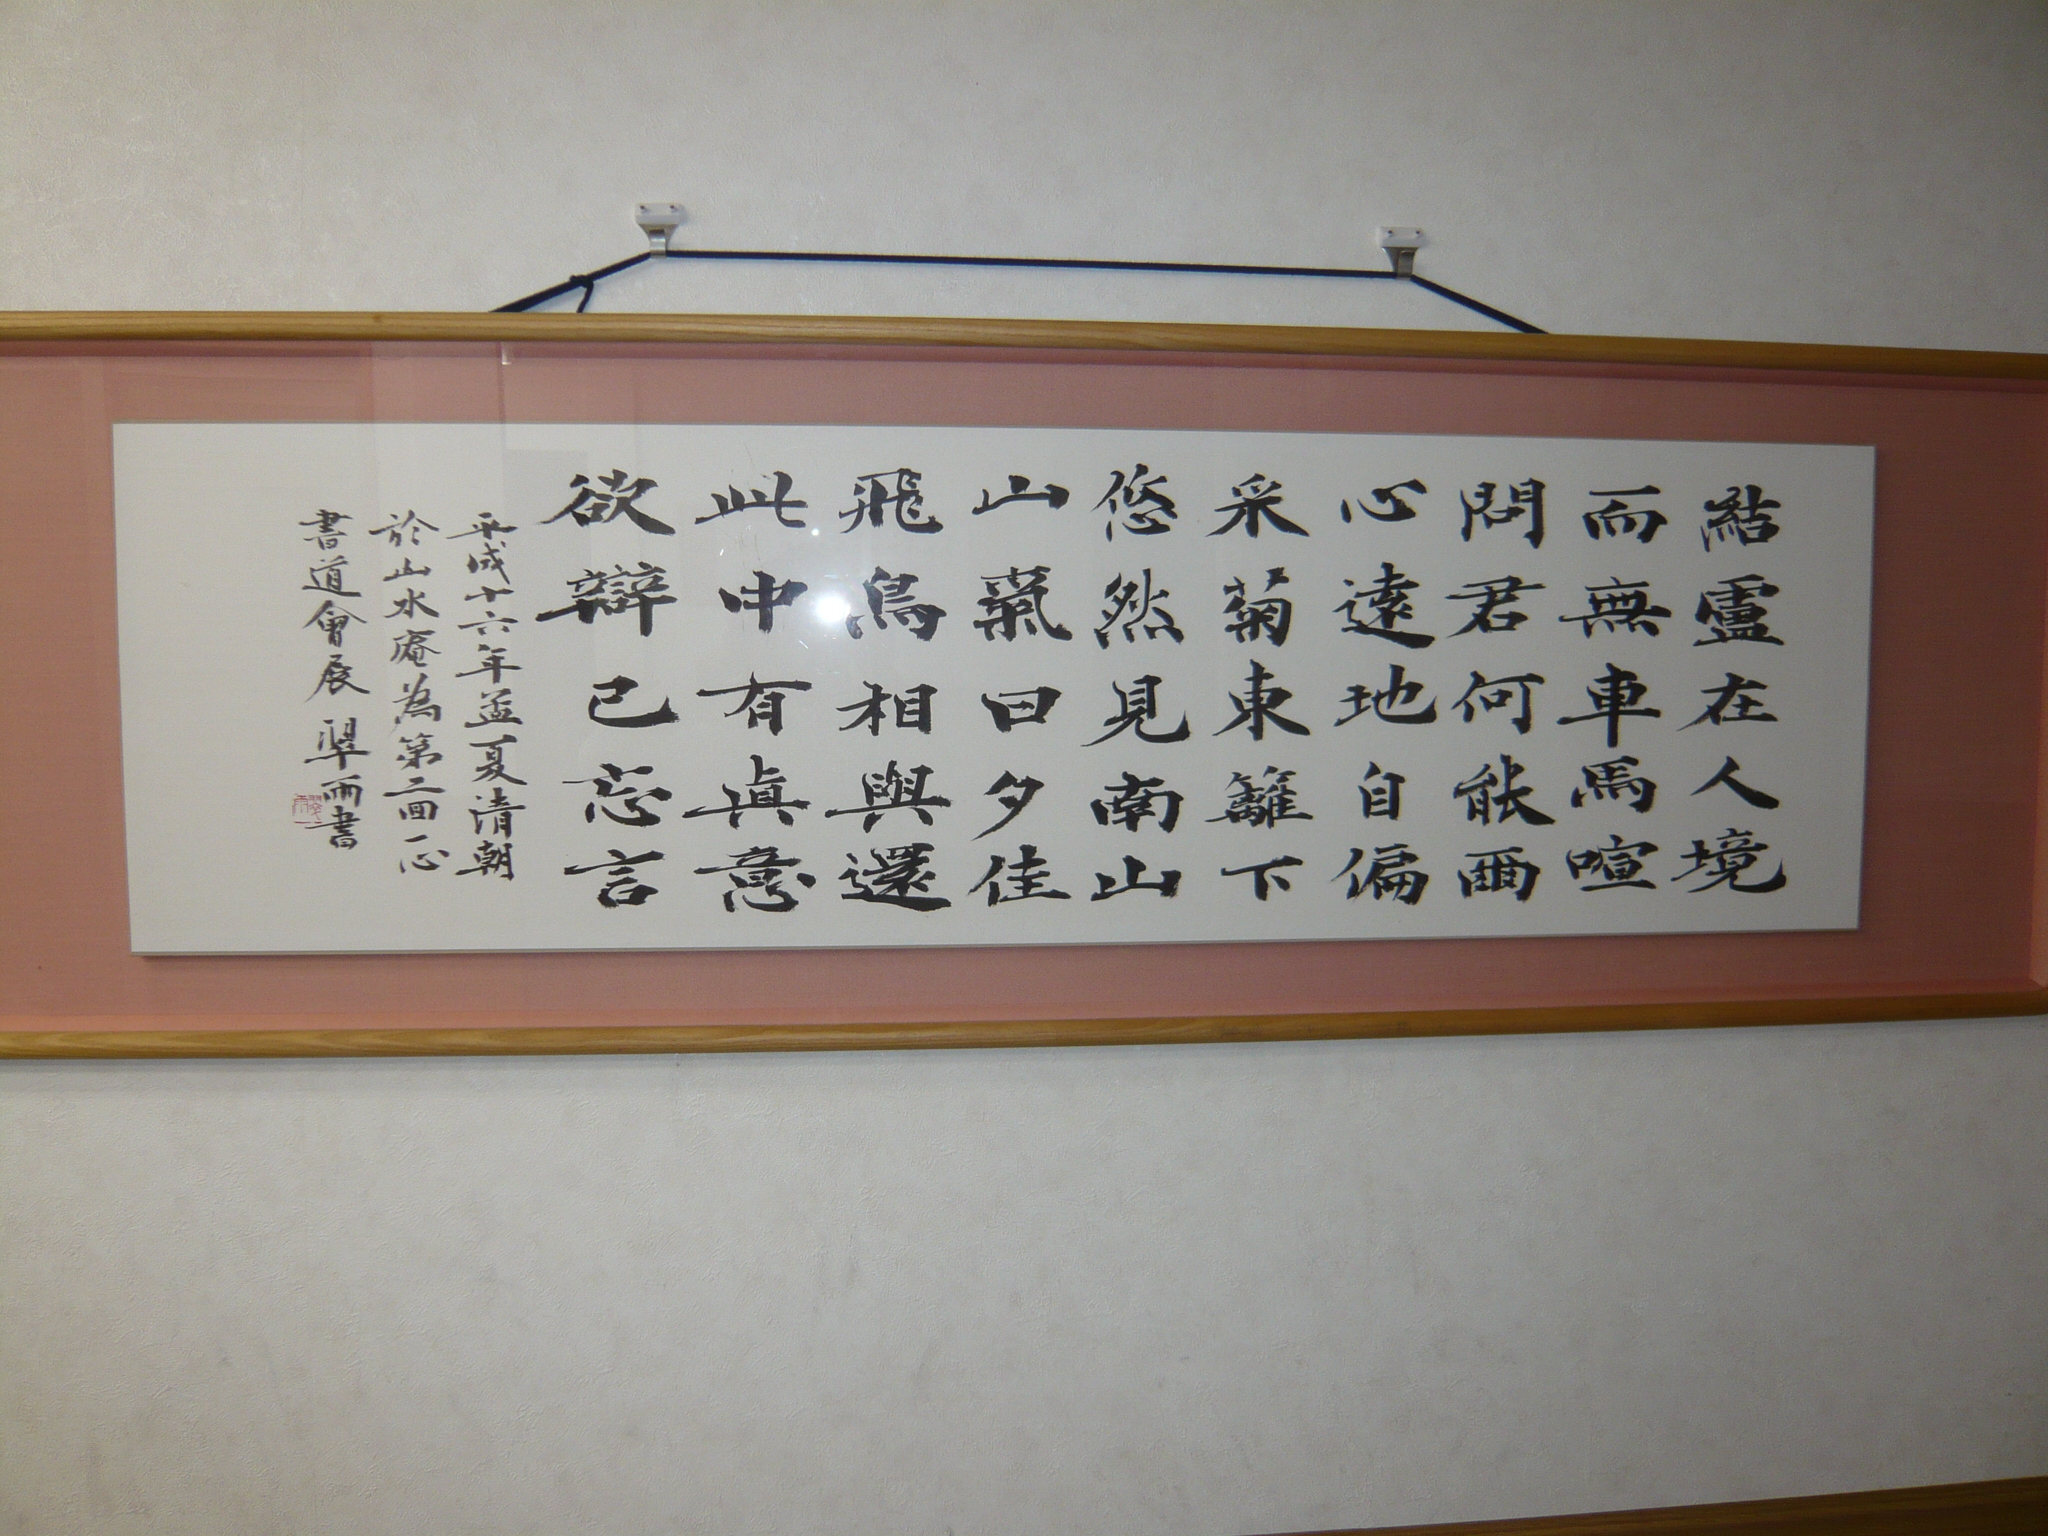 結廬在人境
而無車馬喧
問君何能爾
心遠地自偏
采菊東籬下
悠然見南山
山氣日夕佳
飛鳥相與還
此中有眞意
欲辯已忘言
平成十六年孟夏清朝
於山水庵為第二回一心
書道會展 翠雨書